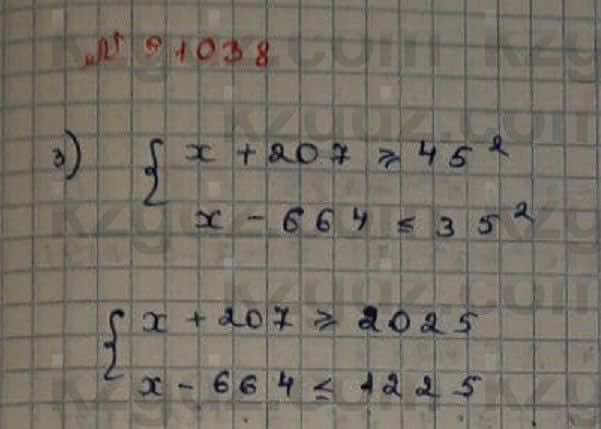 № 1038
3) { x + 207 ≥ 45²
x - 664 ≤ 35²
{ x + 207 ≥ 2025
x - 664 ≤ 1225